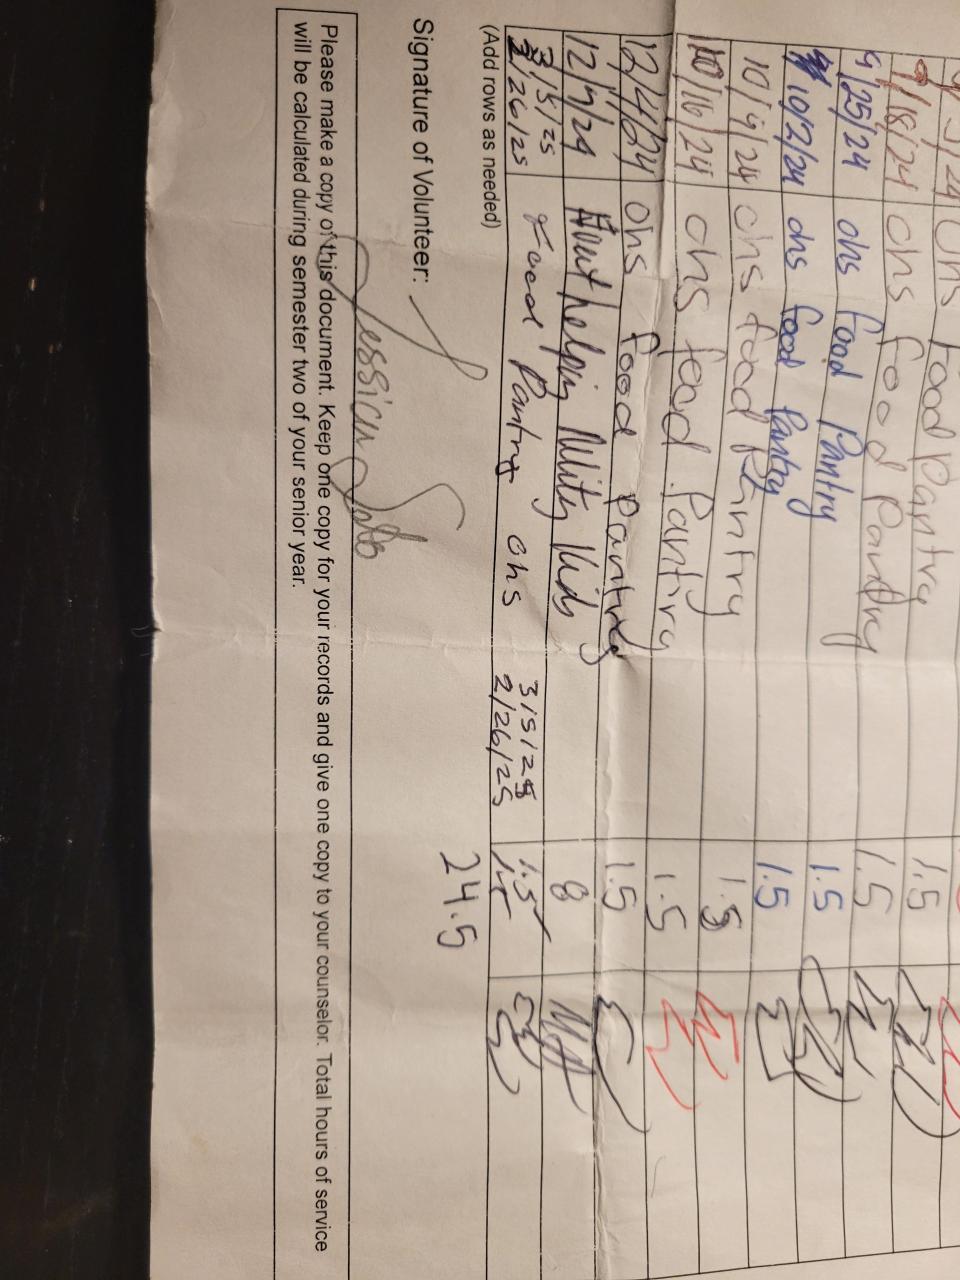 food Pantry
9/18/24 ohs food Pantry 1.5
9/25/24 ohs food Pantry 1.5
10/2/24 ohs food Pantry 1.5
10/9/24 ohs food Pantry 1.5
10/16/24 ohs food Pantry 1.5
12/4/24 ohs food Pantry 1.5
12/7/24 helping Kids 8
3/5/25 3/5/25 1.5
2/26/25 food Pantry ohs 2/26/25
(Add rows as needed) 24.5
Signature of Volunteer: Jessica
Please make a copy of this document. Keep one copy for your records and give one copy to your counselor. Total hours of service
will be calculated during semester two of your senior year.